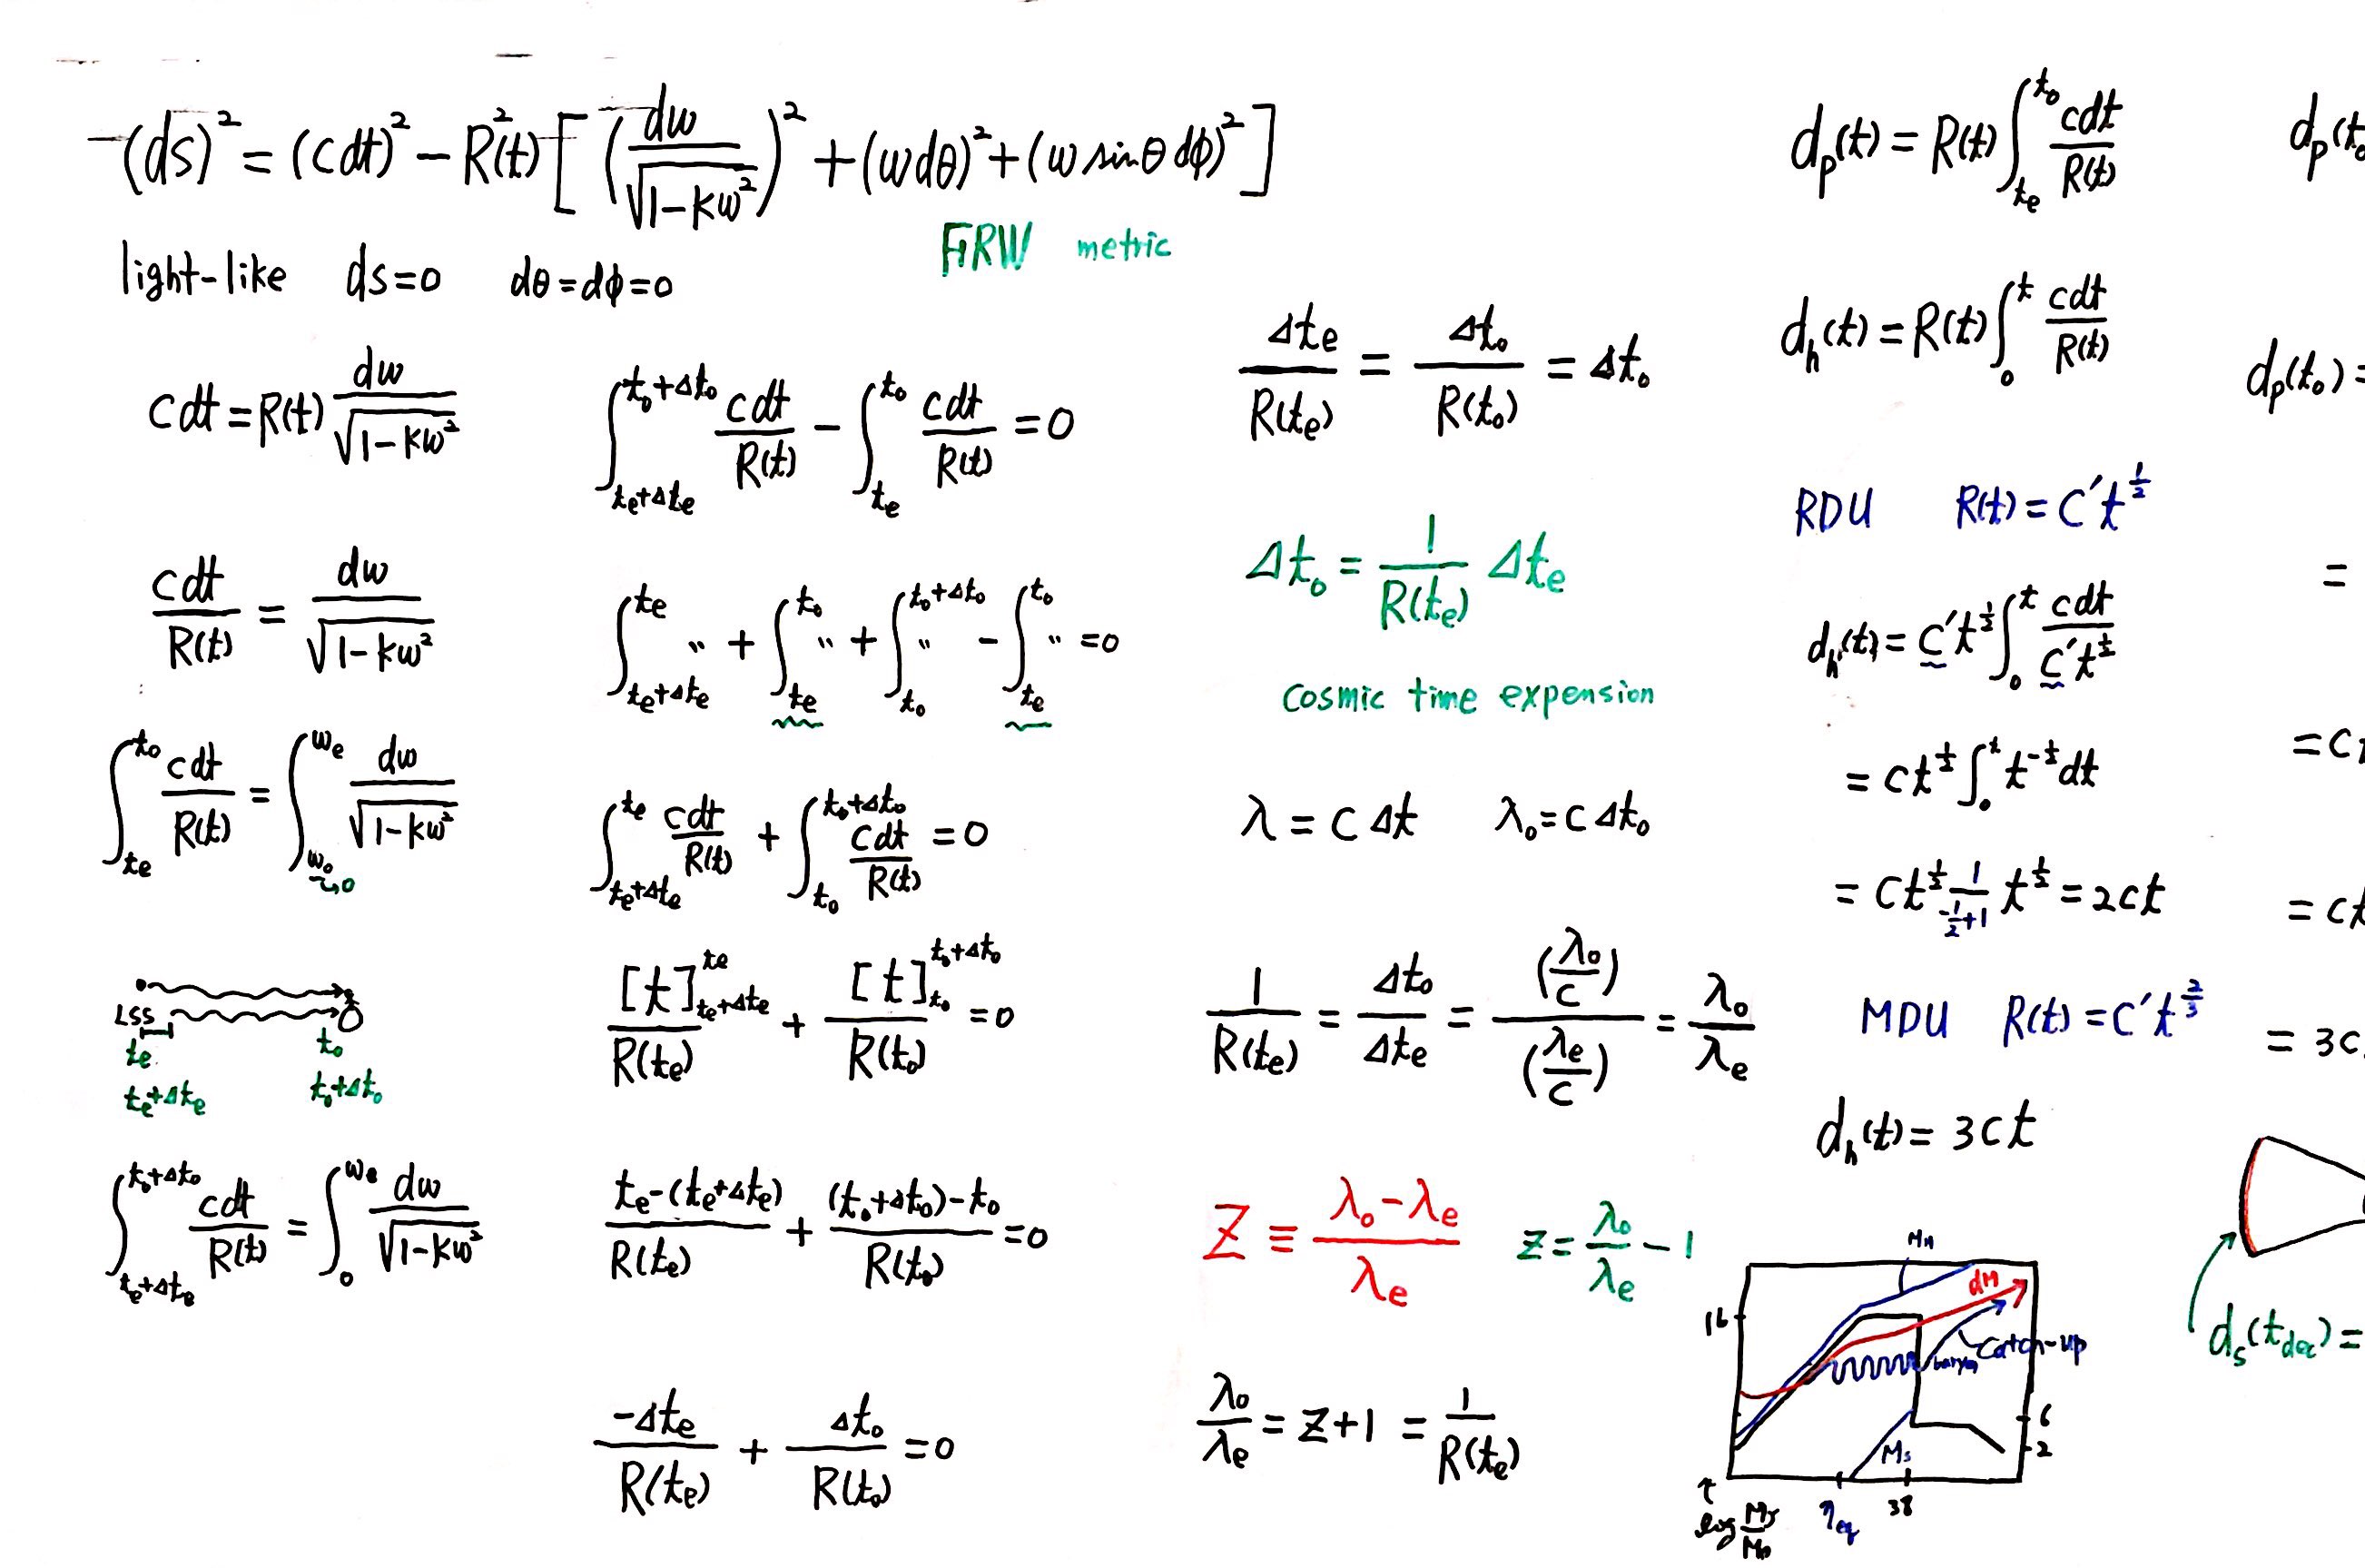 (ds)² = (cdt)² − R²(t) [ (dω/√(1−kω²))² + (ωdθ)² + (ω sinθ dϕ)² ]
FRW metric
light-like ds=0 dθ=dϕ=0
cdt = R(t) dω/√(1−kω²)
cdt/R(t) = dω/√(1−kω²)
∫_{te}^{t₀} cdt/R(t) = ∫_{ω₀→0}^{ωe} dω/√(1−kω²)
LSS
te t₀
te+Δte t₀+Δt₀
∫_{te+Δte}^{t₀+Δt₀} cdt/R(t) = ∫_0^{ωe} dω/√(1−kω²)
∫_{te+Δte}^{t₀+Δt₀} cdt/R(t) − ∫_{te}^{t₀} cdt/R(t) = 0
∫_{te+Δte}^{te} " + ∫_{te}^{t₀} " + ∫_{t₀}^{t₀+Δt₀} " − ∫_{te}^{t₀} " = 0
∫_{te+Δte}^{te} cdt/R(t) + ∫_{t₀}^{t₀+Δt₀} cdt/R(t) = 0
[t]_{te+Δte}^{te}/R(te) + [t]_{t₀}^{t₀+Δt₀}/R(t₀) = 0
te−(te+Δte)/R(te) + (t₀+Δt₀)−t₀/R(t₀) = 0
−Δte/R(te) + Δt₀/R(t₀) = 0
Δte/R(te) = Δt₀/R(t₀) = Δt₀
Δt₀ = 1/R(te) Δte
Cosmic time expension
λ = cΔt λ₀ = cΔt₀
1/R(te) = Δt₀/Δte = (λ₀/c)/(λe/c) = λ₀/λe
Z ≡ λ₀−λe/λe z = λ₀/λe − 1
λ₀/λe = z+1 = 1/R(te)
dp(t) = R(t) ∫_{te}^{t₀} cdt/R(t)
dh(t) = R(t) ∫_0^t cdt/R(t)
RDU R(t) = C′t^{1/2}
dh(t) = C′t^{1/2} ∫_0^t cdt/C′t^{1/2}
= ct^{1/2} ∫_0^t t^{−1/2} dt
= ct^{1/2} 1/(−1/2+1) t^{1/2} = 2ct
MDU R(t) = C′t^{2/3}
dh(t) = 3ct
MH
16
dM
Catch-up
baryon
6
2
MJ
38
ηeq
log
dp(t₀
dp(t₀) =
=
= c
= ct
= 3c
ds(tdec) =